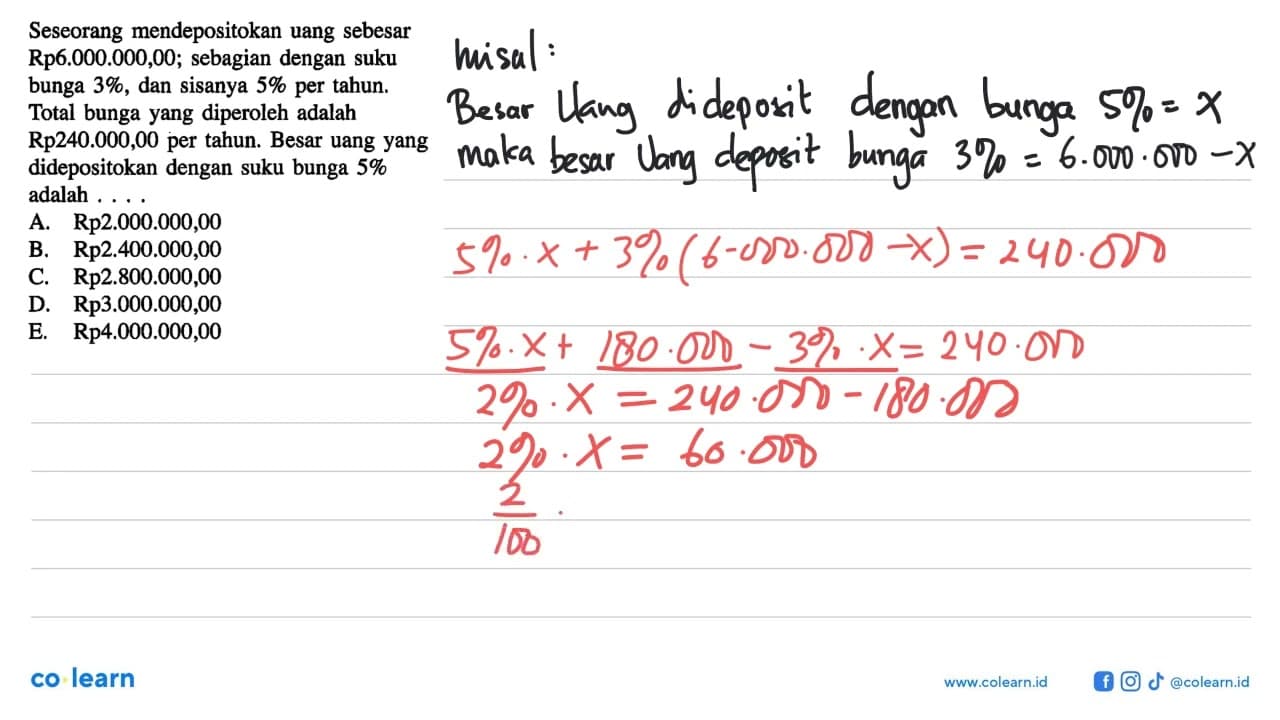 Seseorang mendepositokan uang sebesar
Rp6.000.000,00; sebagian dengan suku
bunga 3%, dan sisanya 5% per tahun.
Total bunga yang diperoleh adalah
Rp240.000,00 per tahun. Besar uang yang
didepositokan dengan suku bunga 5%
adalah . . . .
A. Rp2.000.000,00
B. Rp2.400.000,00
C. Rp2.800.000,00
D. Rp3.000.000,00
E. Rp4.000.000,00
misal :
Besar Uang dideposit dengan bunga 5% = x
maka besar Uang deposit bunga 3% = 6.000.000 - x
5% . x + 3% (6.000.000 - x) = 240.000
5% . x + 180.000 - 3% . x = 240.000
2% . x = 240.000 - 180.000
2% . x = 60.000
2
100 .
co learn
www.colearn.id
@colearn.id